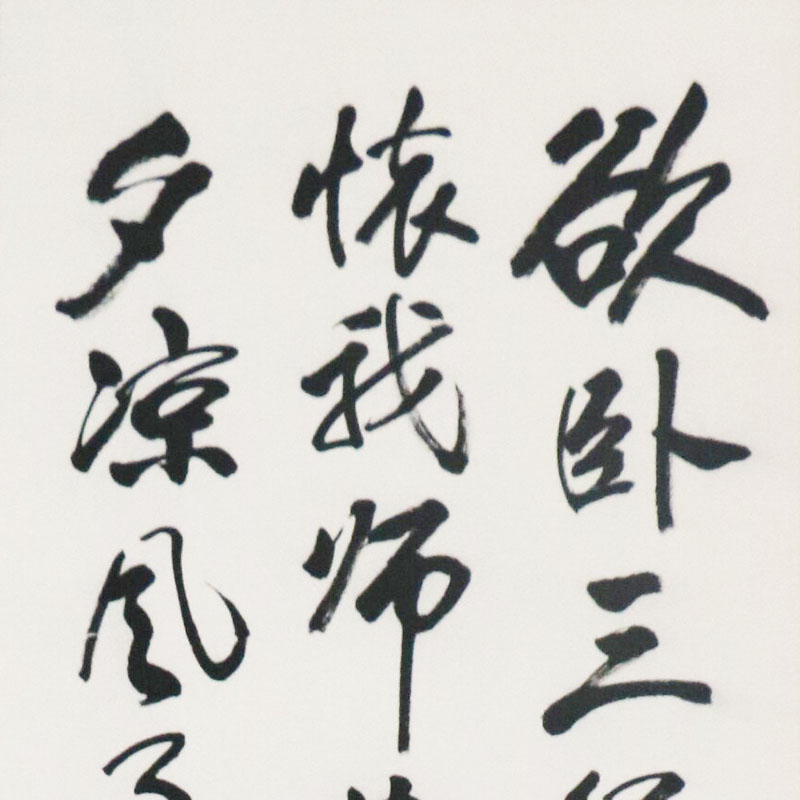 欲卧三
怀我师
夕凉风